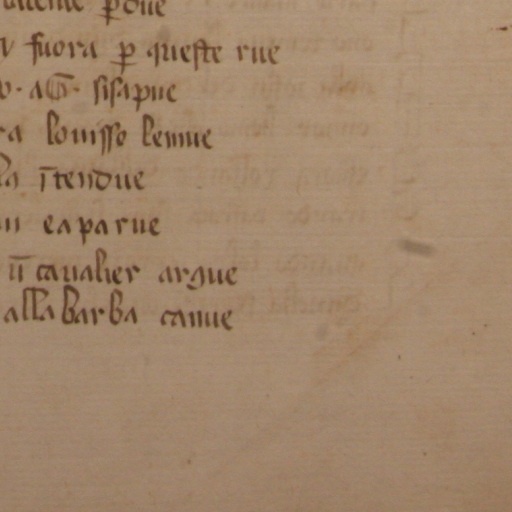 ꝑdue
fuora ꝑ queste rue
sisapue
louisso lemue
ītendue
eaparue
ū caualier argue
alla barba canue